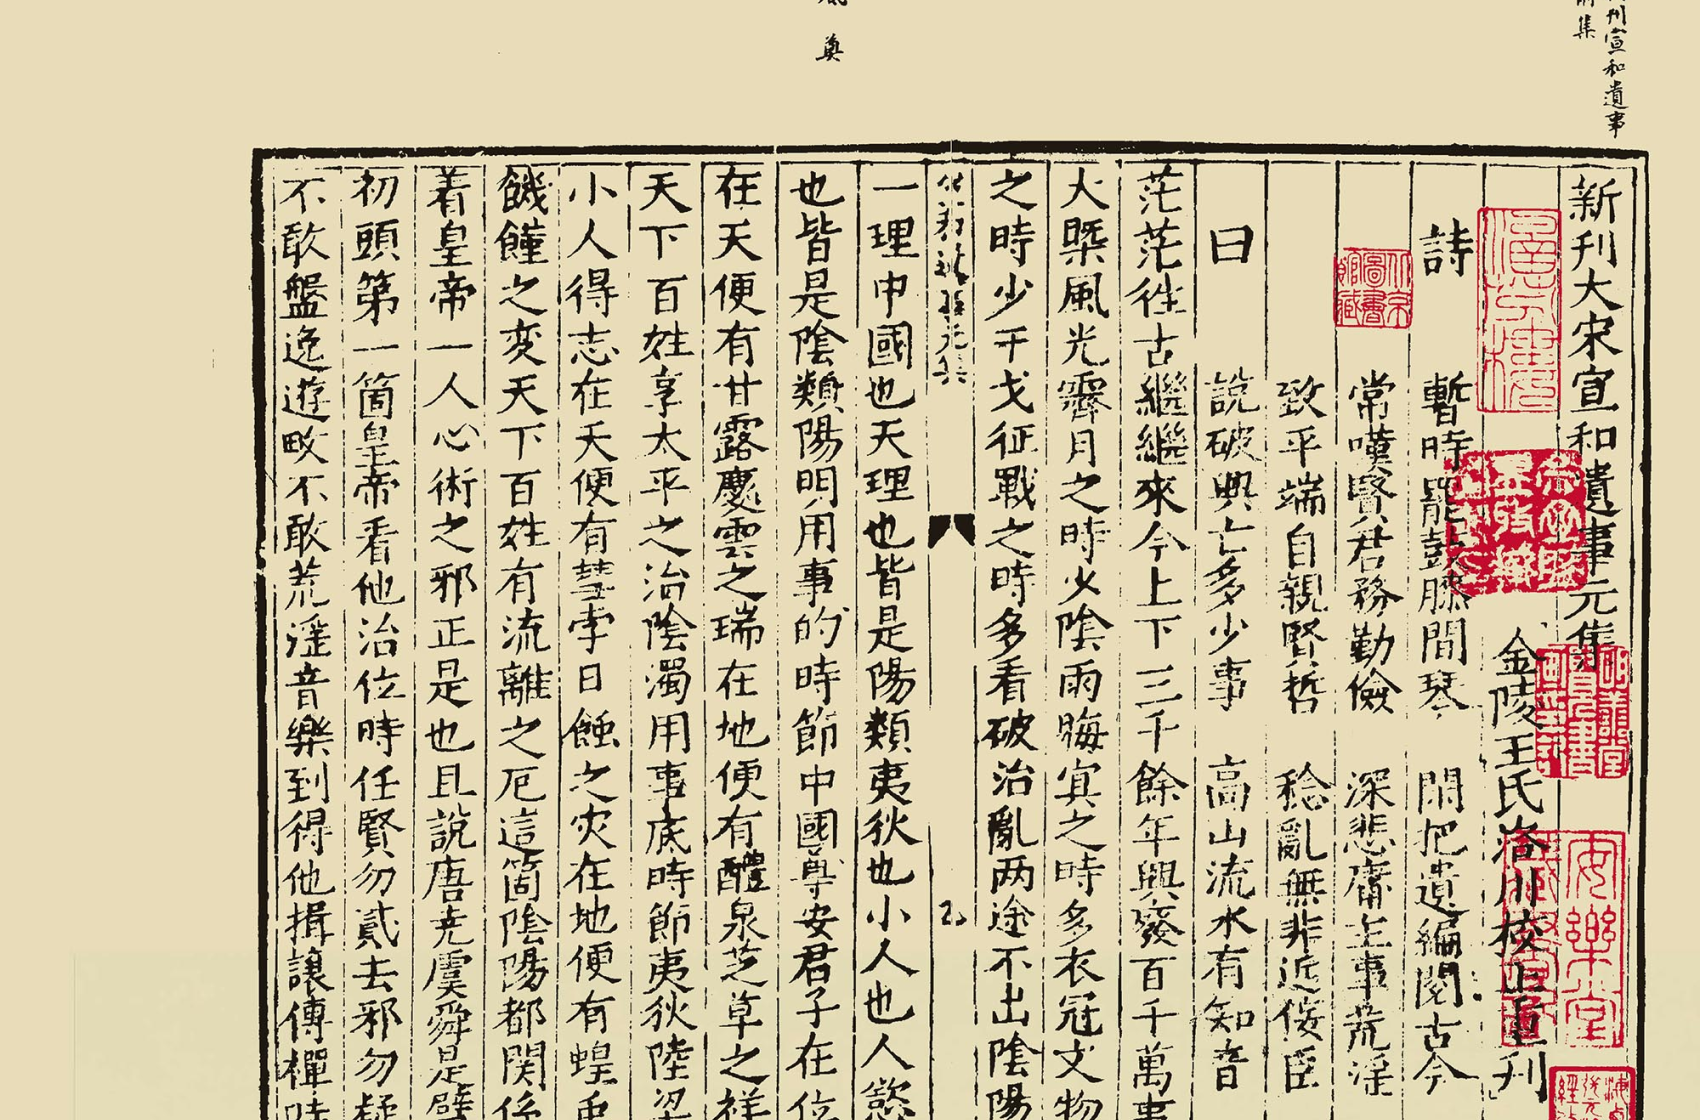 刊宣和遺事
集
奠
新刊大宋宣和遺事元集
金陵王氏洛川校正重刊
詩　暫時罷鼓膝間琴　閑把遺編閱古今
常嘆賢君務勤儉　深悲庸主事荒淫
致平端自親賢哲　稔亂無非近佞臣
曰　說破興亡多少事　高山流水有知音
茫茫徃古継継來今上下三千餘年興廢百千萬事
大槩風光霽月之時少陰雨晦冥之時多衣冠文物
之時少干戈征戰之時多看破治亂两途不出陰陽
一理中國也天理也皆是陽類夷狄也小人也人慾
也皆是陰類陽明用事的時節中國尊安君子在位
在天便有甘露慶雲之瑞在地便有醴泉芝草之祥
天下百姓享太平之治陰濁用事底時節夷狄陸梁
小人得志在天便有彗孛日蝕之灾在地便有蝗虫
饑饉之变天下百姓有流離之厄這箇陰陽都関係
着皇帝一人心術之邪正是也且說唐尭虞舜是
初頭第一箇皇帝看他治位時任賢勿貳去邪勿疑
不敢盤逸遊畋不敢荒滛音樂到得他揖讓傳禪時
北京圖書館藏
安樂堂